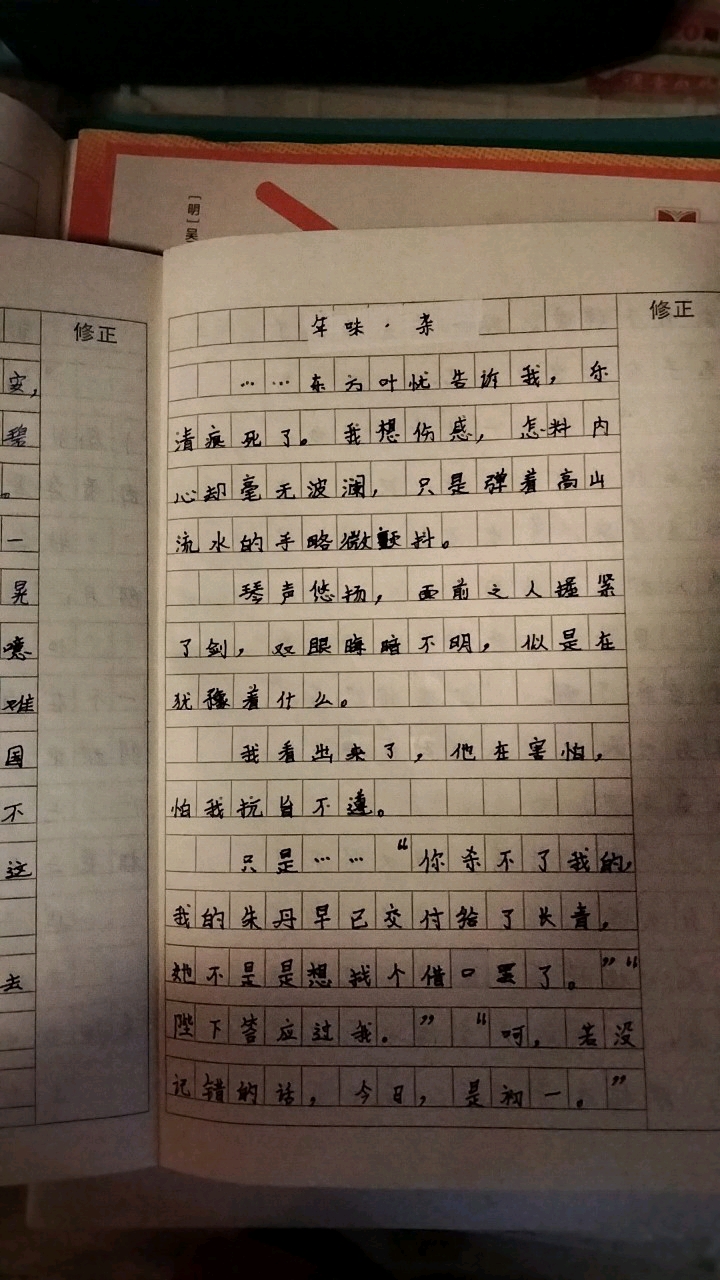 [明]吴
修正
变,
碧
。
一
晃
噫
难
国
不
这
去
修正
年味·杀
……东方叶忧告诉我,乐
清痕死了。我想伤感,怎料内
心却毫无波澜,只是弹着高山
流水的手略微颤抖。
琴声悠扬,面前之人握紧
了剑,双眼晦暗不明,似是在
犹豫着什么。
我看出来了,他在害怕,
怕我抗旨不遵。
只是……“你杀不了我的,
我的朱丹早已交付给了长青,
她不是是想找个借口罢了。”“
陛下答应过我。”“呵,若没
记错的话,今日,是初一。”